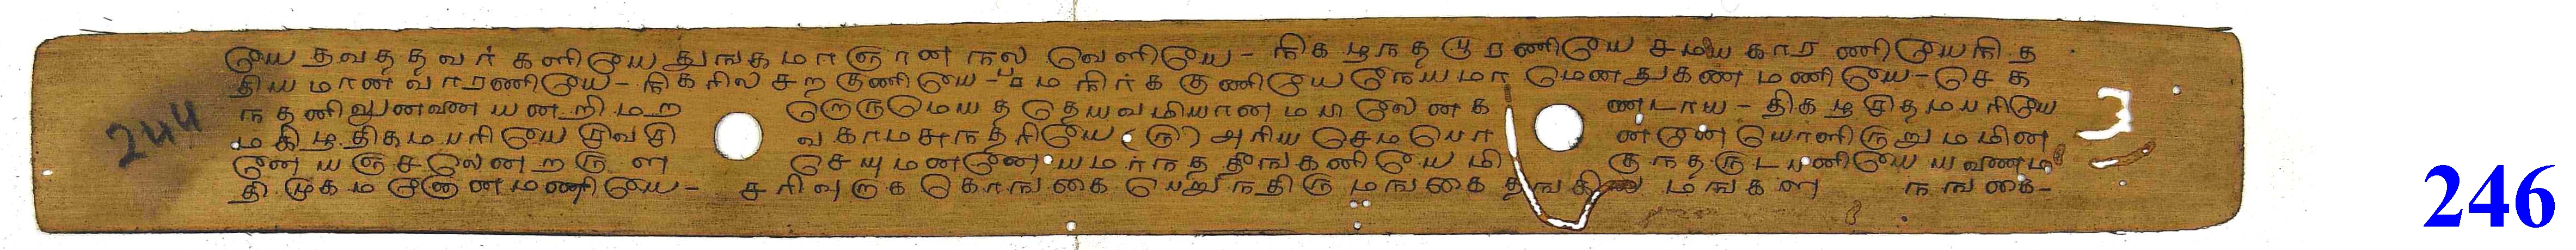 யே தவத தவர் களியே துஙகமாஞான நல வெளியே - நிகழநத பூரணியே சமயகாரணியேநித
தியமான வாரணியே - நிகரில சறகுணியே - மநிர்ககுணியே நேயமா மெனதுகணமணியே - செக
நதனிலுனவண யனறிமற றெருமெயத தெயவமியான மயிலேனக ணடாய - திகழசிதமபரியே
மகிழ திகமபரியே சிவசி வகாமசுநதரியே (ரு) அரிய செமபொ னனே யொளிருறுமமின
னே யஞசலேனறருள செயுமனனே யமர்நத தீஙகனியே மி குநதருடபணியே யவணம
திமுகமனேனமணியே - சரிவுருக கொஙகை பெறுநதிருமஙகை தஙகி மஙகள நஙகை -
244
246